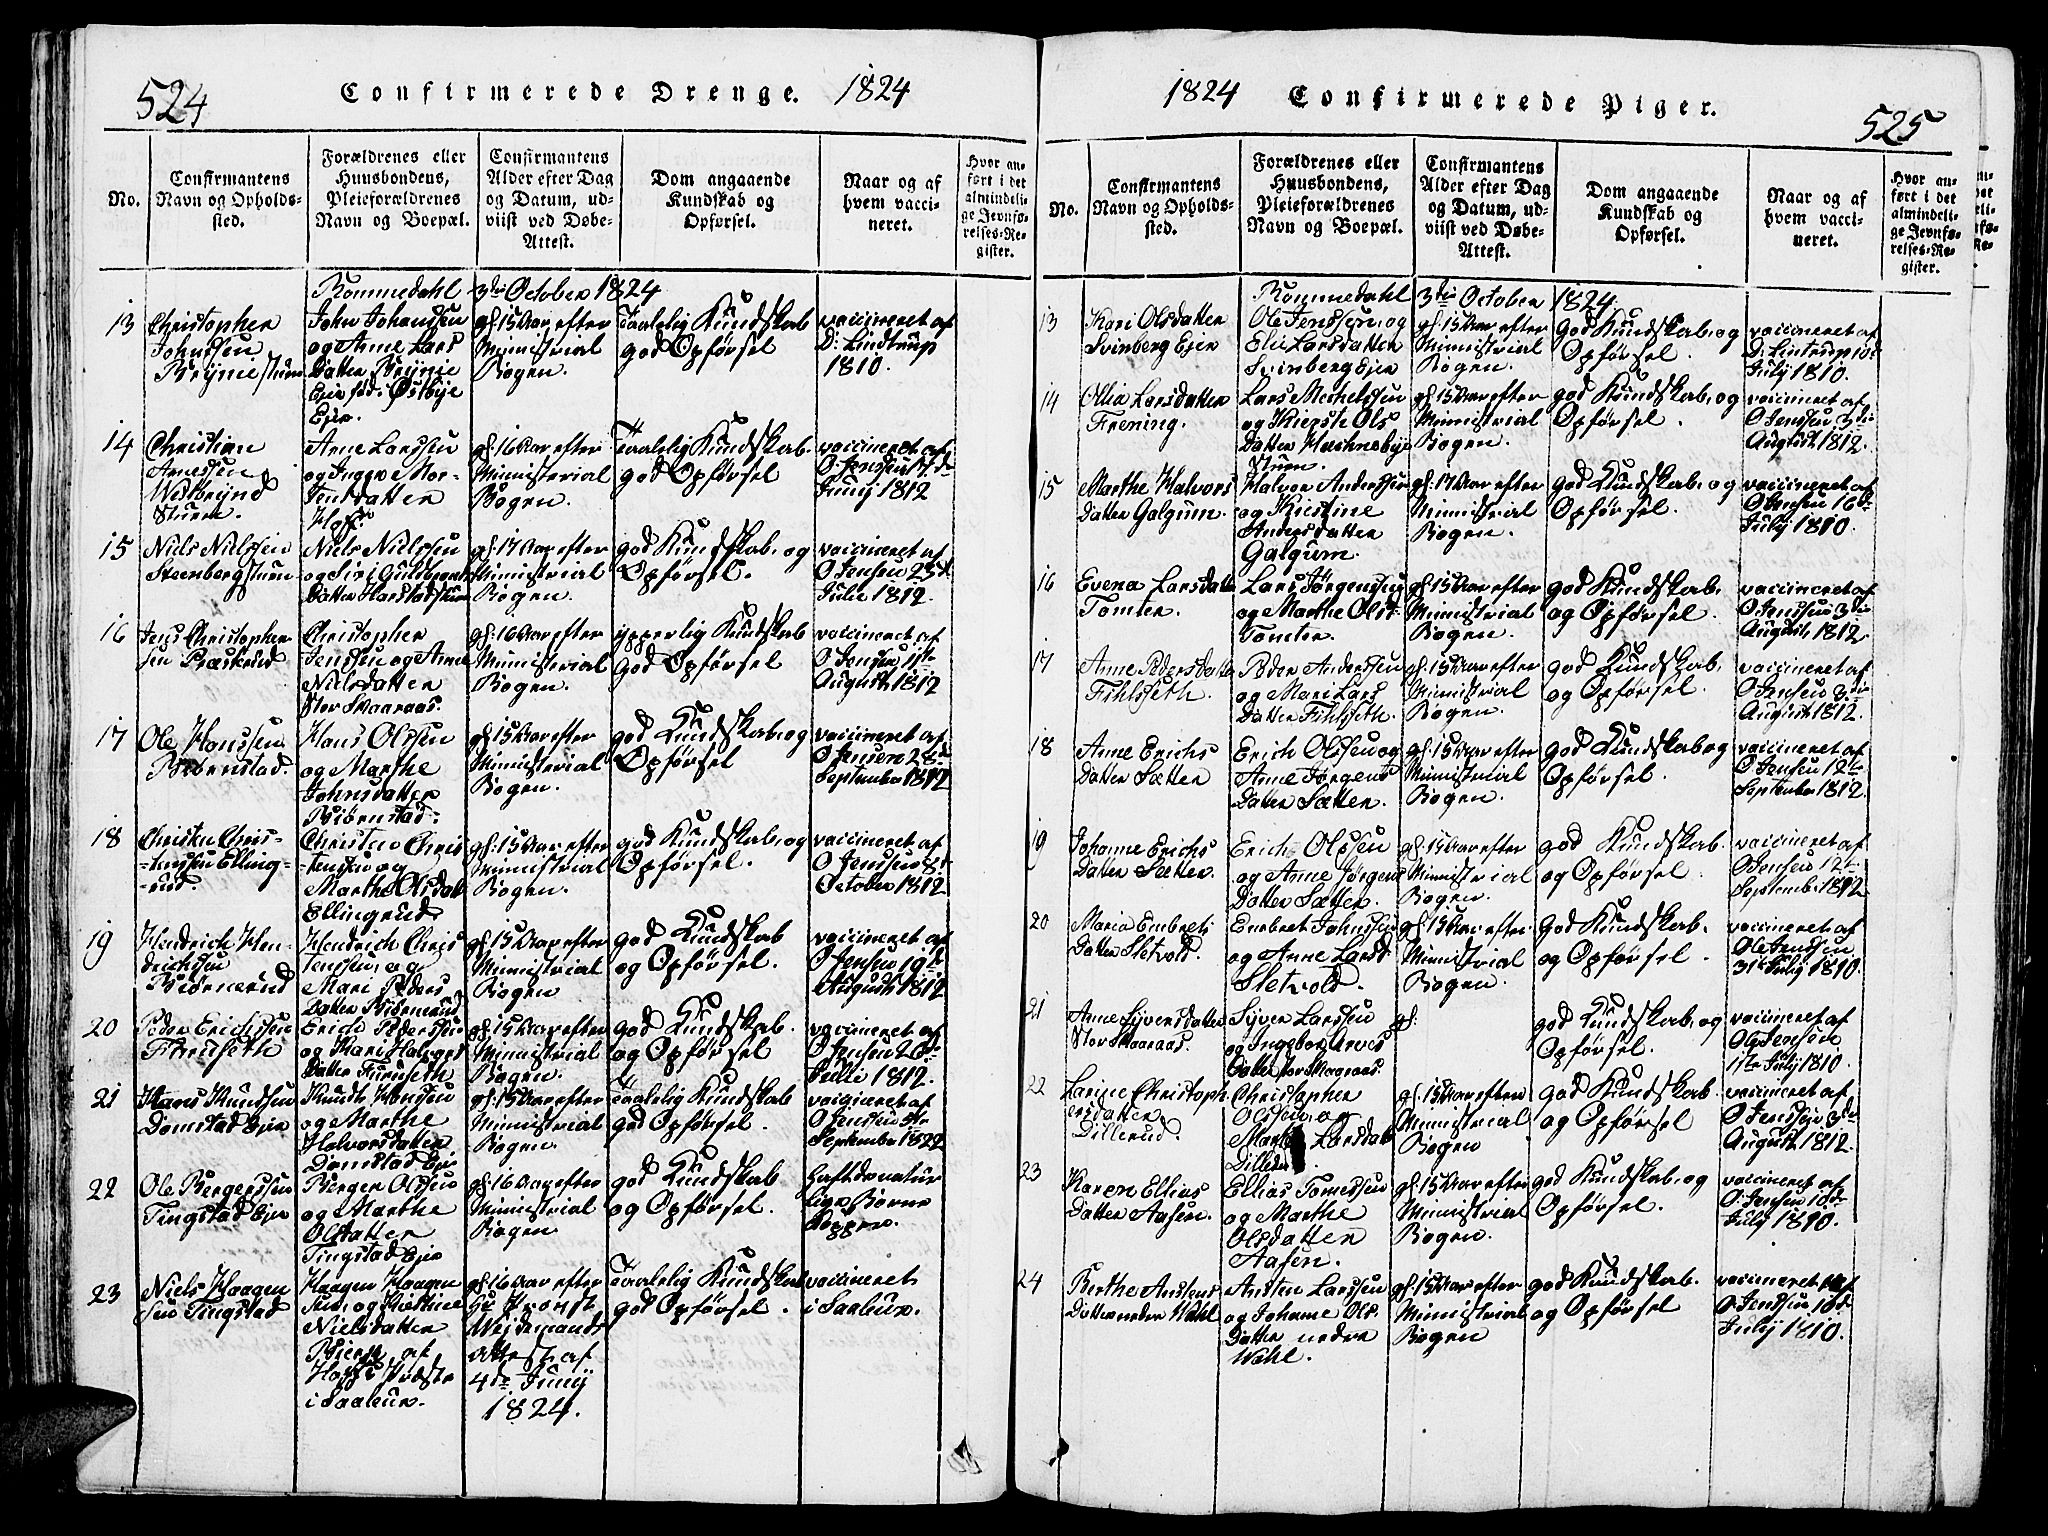 524
Confirmerede Drenge. 1824
No.
Confirmantens
Navn og Opholds-
sted.
Forældrenes eller
Huusbondens,
Pleieforældrenes
Navn og Boepæl.
Confirmantens
Alder efter Dag
og Datum, ud-
viist ved Døbe-
Attest.
Dom angaaende
Kundskab og
Opførsel.
Naar og af
hvem vacci-
neret.
Hvor an-
ført i det
almindeli-
ge Jevnfø-
relses-Re-
gister.
Rommedahl 3die October 1824
13
Christopher
Johnssen
Brynie stuen
John Johanssen
og Anne Lars
Datter Brynie
Ejer fød: Østbye
Ejer.
gl: 15 Aar efter
Ministrial
Bogen.
Taalelig Kundskab
god Opførsel
vaccineret af
D: Lindtrup
1810.
14
Christian
Arnessen
Westbrynd
Stuen.
Arne Larssen
og Inger Mor-
tensdatter
gl: 16 Aar efter
Ministrial
Bogen.
Taalelig Kundskab.
god Opførsel
vaccineret af
O. Jenssen
Junij 1812
15
Niels Nielssen
Steenberg stuen
Niels Nielssen
og Siri Guldbrands
Datter Harstadstuen
gl: 17 Aar efter
Ministrial
Bogen.
god Kundskab, og
Opførsel.
vaccineret af
O Jensen 23de
Julii 1812.
16
Jens Christopher
sen Præskrud
Christopher
Jenssen og Anne
Nielsdatter
Stor Skaaraas.
gl: 16 Aar efter
Ministrial
Bogen.
ypperlig Kundskab
God Opførsel
vaccineret af
O Jenssen 1ste
August 1812
17
Ole Hanssen
Biørnstad.
Hans Olssen
og Marthe
Johnsdatter
Biørnstad.
gl: 15 Aar efter
Ministrial
Bogen.
god Kundskab, og
Opførsel
vaccineret af
O Jensen 28de
September 1812
18
Christen Chris-
-tenssen Elling-
-rud.
Christen Chris
tenssen og
Marthe Olsdatt
Ellingrud
gl: 15 Aar efter
Ministrial
Bogen
god Kundskab, og
Opførsel.
vaccineret af
O Jenssen 8de
October 1812
19
Hendrich Hen-
drichssen
Biørnerud
Hendrich Chris
tenssen, og
Mari Peders
Datter Biørnerud
gl: 15 Aar efter
Ministrial
Bogen
god Kundskab
og Opførsel.
vaccineret af
O Jensen 19de
August 1812
20
Peder Erichssen
Furuseth
Erich Pederssen
og Kari Halvors
Datter Furuseth
gl: 15 Aar efter
Ministrial
Bogen.
god Kundskab.
og Opførsel
vaccineret af
O Jensen 26de
Julii 1812.
21
Hans Knudsen
Domstad Ejer
Knudt Hansen
og Marthe
Halvorsdatter
Domstad Ejer
gl: 15 Aar efter
Ministrial
Bogen
Taalelig Kundskab
god Opførsel.
vaccineret af
O Jenssen
September 1822
22
Ole Bergerssen
Tingstad Ejer
Berger Olssen
og Marthe
Olsdatter
Tingstad Ejer
gl: 16 Aar efter
Ministrial
Bogen
god Kundskab
og Opførsel.
haft de natur
lige Børne
Kopper.
23
Niels Haagen
sen Tingstad
Haagen Haagen
sen, og Kirstine
Nielsdatter
af
i Saaleur.
gl: 16 Aar efter
Hr Provst
Wejdemands
Attest af
4de Junij
1824.
Taalelig Kundskab
god Opførsel.
vaccineret
i Saaleur.
1824 Confirmerede Piger.
525
No.
Confirmantens
Navn og Opholds-
sted.
Forældrenes eller
Huusbondens,
Pleieforældrenes
Navn og Boepæl.
Confirmantens
Alder efter Dag
og Datum, ud-
viist ved Døbe-
Attest.
Dom angaaende
Kundskab og
Opførsel.
Naar og af
hvem vacci-
neret.
Hvor an-
ført i det
almindeli-
ge Jevnfø-
relses-Re-
gister.
Rommedahl 3die October 1824.
13
Kari Olsdatter
Svinberg Ejer
Ole Jenssen, og
Elie Larsdatter
Svinberg Ejer
gl: 15 Aar efter
Ministrial
Bogen.
god Kundskab, og
Opførsel.
vaccineret af
D: Lintrup 10de
Julij 1810.
14
Ollia Larsdatter
Frening.
Lars Mechelssen
og Kiersti Ols
Datter
Stuen.
gl: 15 Aar efter
Ministrial
Bogen.
god Kundskab, og
Opførsel.
vaccineret af
O Jenssen 3die
August 1812.
15
Marthe Halvors
Datter Galgum.
Halvor Anderssen
og Kirstine
Andersdatter
Galgum.
gl: 17 Aar efter
Ministrial
Bogen.
god Kundskab, og
Opførsel.
vaccineret af
O Jensen 16de
Julij 1810.
16
Evena Larsdatter
Tomter.
Lars Jørgenssen
og Marthe Olsd
Tomter.
gl: 15 Aar efter
Ministrial
Bogen.
god Kundskab.
og Opførsel.
vaccineret af
O Jenssen 3die
August 1812.
17
Anne Pedersdatter
Fihlseth.
Peder Anderssen
og Mari Lars
Datter Fihlseth.
gl: 15 Aar efter
Ministrial
Bogen.
god Kundskab.
og Opførsel.
vaccineret af
O Jensen 3die
August 1812.
18
Anne Erichs
Datter Sætter
Erich Olssen og
Anne Jørgens
Datter Sætter.
gl: 15 Aar efter
Ministrial
Bogen.
god Kundskab og
Opførsel.
vaccineret af
O Jensen 12te
September 1812.
19
Johanne Erichs
Datter Sætter.
Erich Olssen
og Anne Jørgens
Datter Sætter.
gl: 15 Aar efter
Ministrial
Bogen.
god Kundskab.
og Opførsel.
vaccineret af
O Jensen 12te
September 1812
20
Maria Embrets
Datter Sletvold.
Embret Johnssen
og Anne Larsd
Sletvold.
gl: 15 Aar efter
Ministrial
Bogen.
god Kundskab.
og Opførsel.
vaccineret af
Ole Jenssen
31te Julij 1810.
21
Anne Syversdatter
Stor Skaaraas.
Syver Larssen
og Ingebor Arnes
Datter Stor Skaaraas.
gl:
god Kundskab, og
Opførsel.
vaccineret af
Ole Jensen
Julij 1810.
22
Larine Christoph
ersdatter
Dillerud.
Christopher
Olssen, og
Larsdatt
gl: 15 Aar efter
Ministrial
Bogen
god Kundskab
og Opførsel
vaccineret af
O Jenssen 3die
August 1812.
23
Karen Ellias
Datter Aasen.
Ellias Tomessen
og Marthe
Olsdatter
Aasen.
gl: 15 Aar efter
Ministrial
Bogen.
god Kundskab, og
Opførsel.
vaccineret af
O Jensen 10de
Julij 1810.
24
Berthe Anstens
Datter neder Wahl
Ansten Larssen
og Johanne Ols
Datter neder
Wahl.
gl: 15 Aar efter
Ministrial
Bogen
god Kundskab.
og Opførsel
vaccineret af
O Jenssen 10de
Julij 1810.